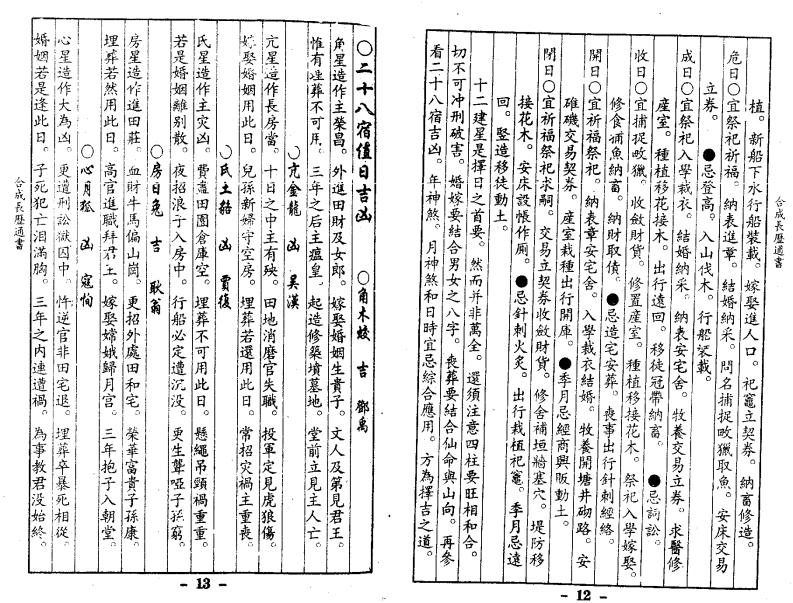 合成長歷通書
植。新船下水行船裝載。嫁娶進人口。祀竈立契券。納畜修造。
危日○宜祭祀祈福。納表進章。結婚納采。問名捕捉畋獵取魚。安床交易
立券。●忌登高。入山伐木。行船裝載。
成日○宜祭祀入學裁衣。結婚納采。納表安宅舍。牧養交易立券。求醫修
產室。種植移花接木。出行遠回。移徒冠帶納畜。●忌詞訟。
收日○宜捕捉畋獵。收斂財貨。修置產室。種植移接花木。祭祀入學嫁娶。
修食捕魚納畜。納財取債。●忌造宅安葬。喪事出行針刺經絡。
開日○宜祈福祭祀。納表章安宅舍。入學裁衣結婚。牧養開塘井砌路。安
碓磯交易契券。產室栽種出行開庫。●季月忌經商興販動土。
閉日○宜祈福祭祀求嗣。交易立契券收斂財貨。修舍補垣牆塞穴。堤防移
接花木。安床設帳作厠。●忌針刺火炙。出行栽植祀竈。季月忌遠
回。竪造移徒動土。
十二建星是擇日之首要。然而并非萬全。還須注意四柱要旺相和合。
切不可冲刑破害。婚嫁要結合男女之八字。喪葬要結合仙命與山向。再參
看二十八宿吉凶。年神煞。月神煞和日時宜忌綜合應用。方為擇吉之道。
- 12 -
○二十八宿值日吉凶 ○角木蛟 吉 鄧禹
角星造作主榮昌。外進田財及女郎。嫁娶婚姻生貴子。文人及第見君王。
惟有埋葬不可用。三年之后主瘟皇。起造修築墳墓地。堂前立見主人亡。
○亢金龍 凶 吴漢
亢星造作長房當。十日之中主有殃。田地消磨官失職。投軍定見虎狼傷。
嫁娶婚姻用此日。兒孫新婦守空房。埋葬若還用此日。常招灾禍主重喪。
○氐土貉 凶 賈復
氐星造作主灾凶。費盡田園倉庫空。埋葬不可用此日。懸繩吊頸禍重重。
若是婚姻離别散。夜招浪子入房中。行船必定遭沉没。更生聾啞子孫窮。
○房日兔 吉 耿弇
房星造作進田莊。血財牛馬偏山崗。更招外處田和宅。榮華富貴子孫康。
埋葬若然用此日。高官進職拜君王。嫁娶嫦娥歸月宫。三年抱子入朝堂。
○心月狐 凶 寇恂
心星造作大為凶。更遭刑訟獄囚中。忤逆官非田宅退。埋葬卒暴死相從。
婚姻若是逢此日。子死犯亡泪滿胸。三年之内連遭禍。為事教君没始終。
- 13 -
合成長歷通書